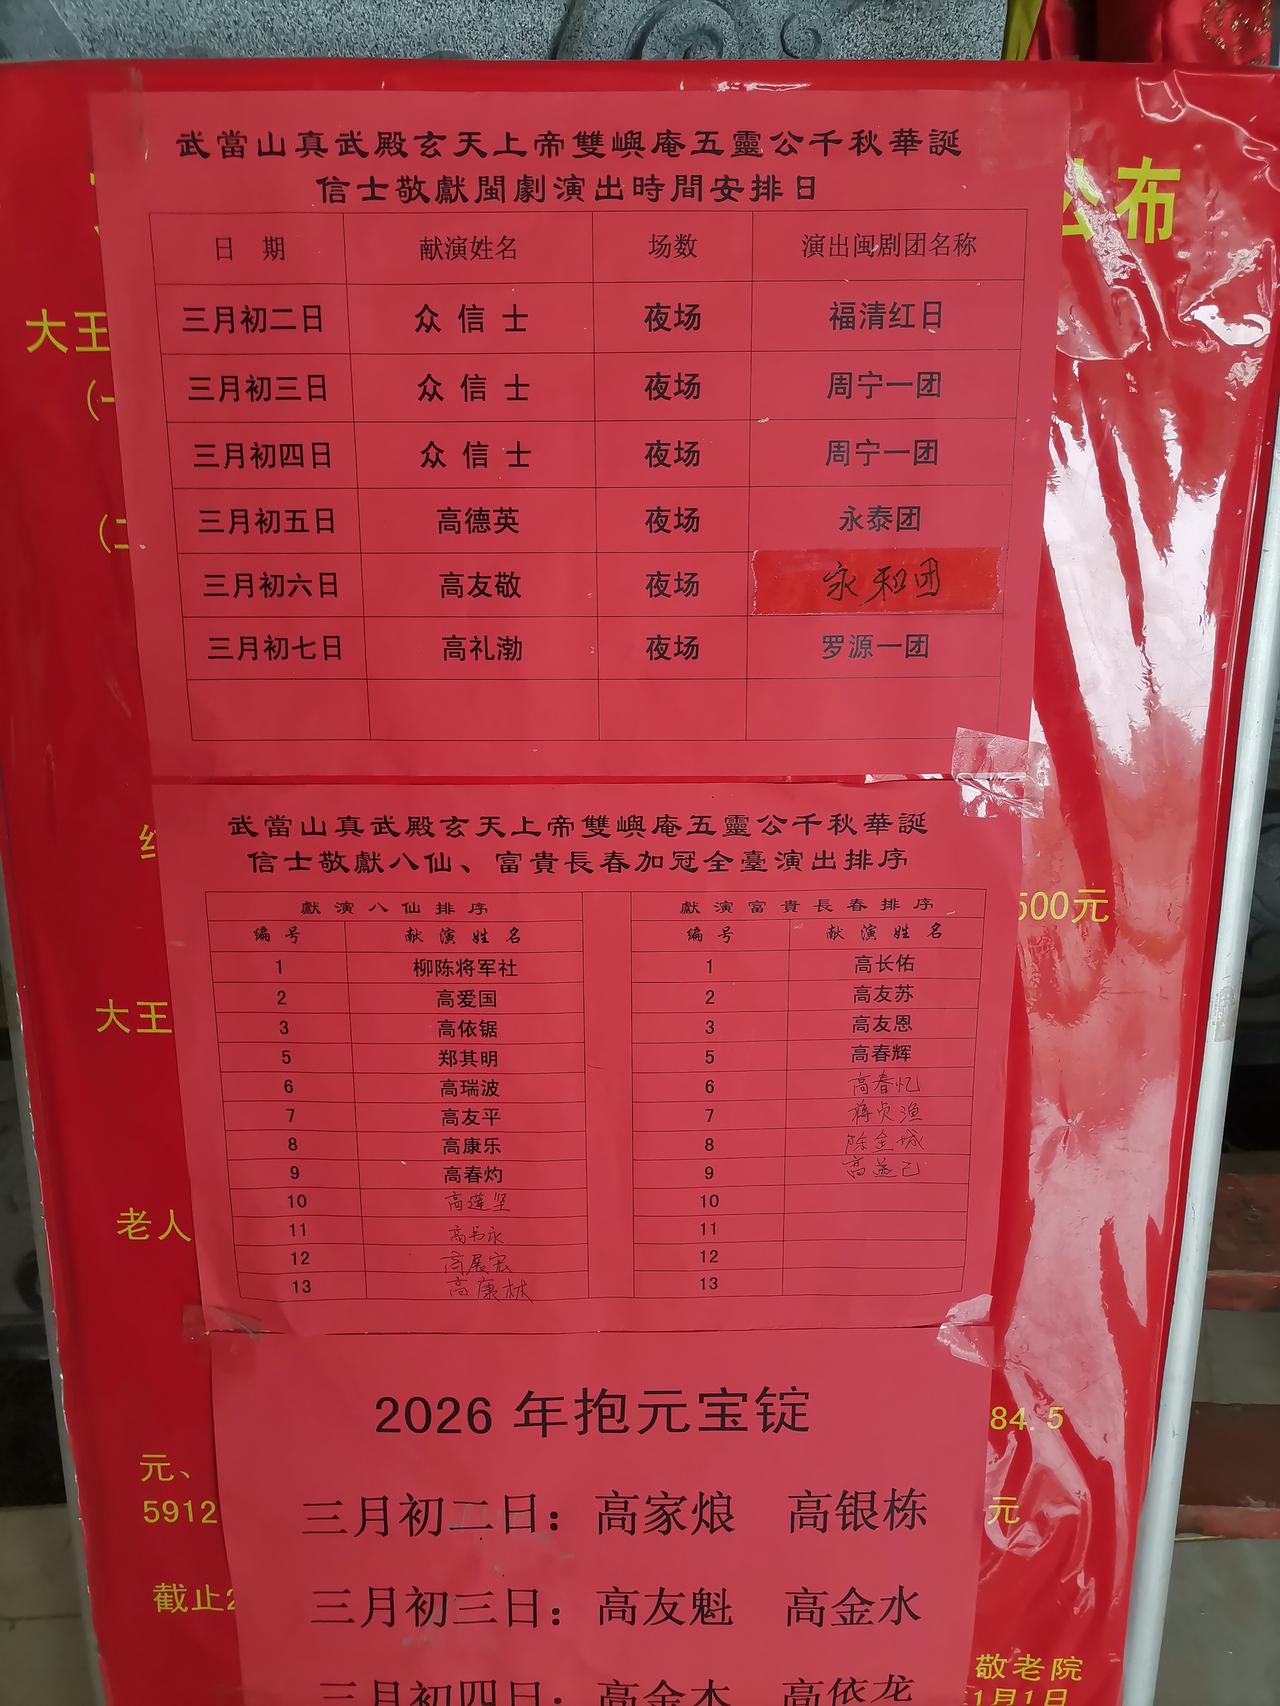 武當山真武殿玄天上帝雙嶼庵五靈公千秋華誕
信士敬獻閩劇演出時間安排日
日 期 献演姓名 场数 演出闽剧团名称
三月初二日 众 信 士 夜场 福清红日
三月初三日 众 信 士 夜场 周宁一团
三月初四日 众 信 士 夜场 周宁一团
三月初五日 高德英 夜场 永泰团
三月初六日 高友敬 夜场 永和团
三月初七日 高礼渤 夜场 罗源一团
武當山真武殿玄天上帝雙嶼庵五靈公千秋華誕
信士敬獻八仙、富貴長春加冠全臺演出排序
獻演八仙排序
编号 献演姓名
1 柳陈将军社
2 高爱国
3 高依锯
5 郑其明
6 高瑞波
7 高友平
8 高康乐
9 高春灼
10 高莲坚
11 高书永
12 高展宏
13 高康林
獻演富貴長春排序
编号 献演姓名
1 高长佑
2 高友苏
3 高友恩
5 高春辉
6 高春忆
7
8 陈金城
9
10
11
12
13
2026 年抱元宝锭
三月初二日：高家烺 高银栋
三月初三日：高友魁 高金水
三月初四日：高金木 高依龙
公布
大王
(一
(二
500元
大王
老人
84.5
元、
5912
元
截止2
敬老院
1月1日